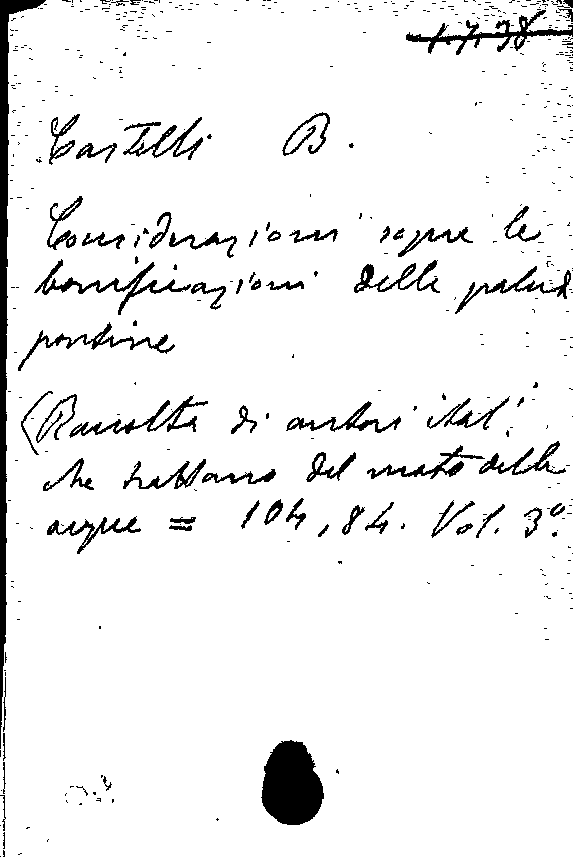 1.7.38
Castelli B.
Considerazioni sopra le
bonificazioni delle palud
pontine
(Raccolta di autori ital.
che trattano del moto delle
acque = 104,84. Vol. 3°.